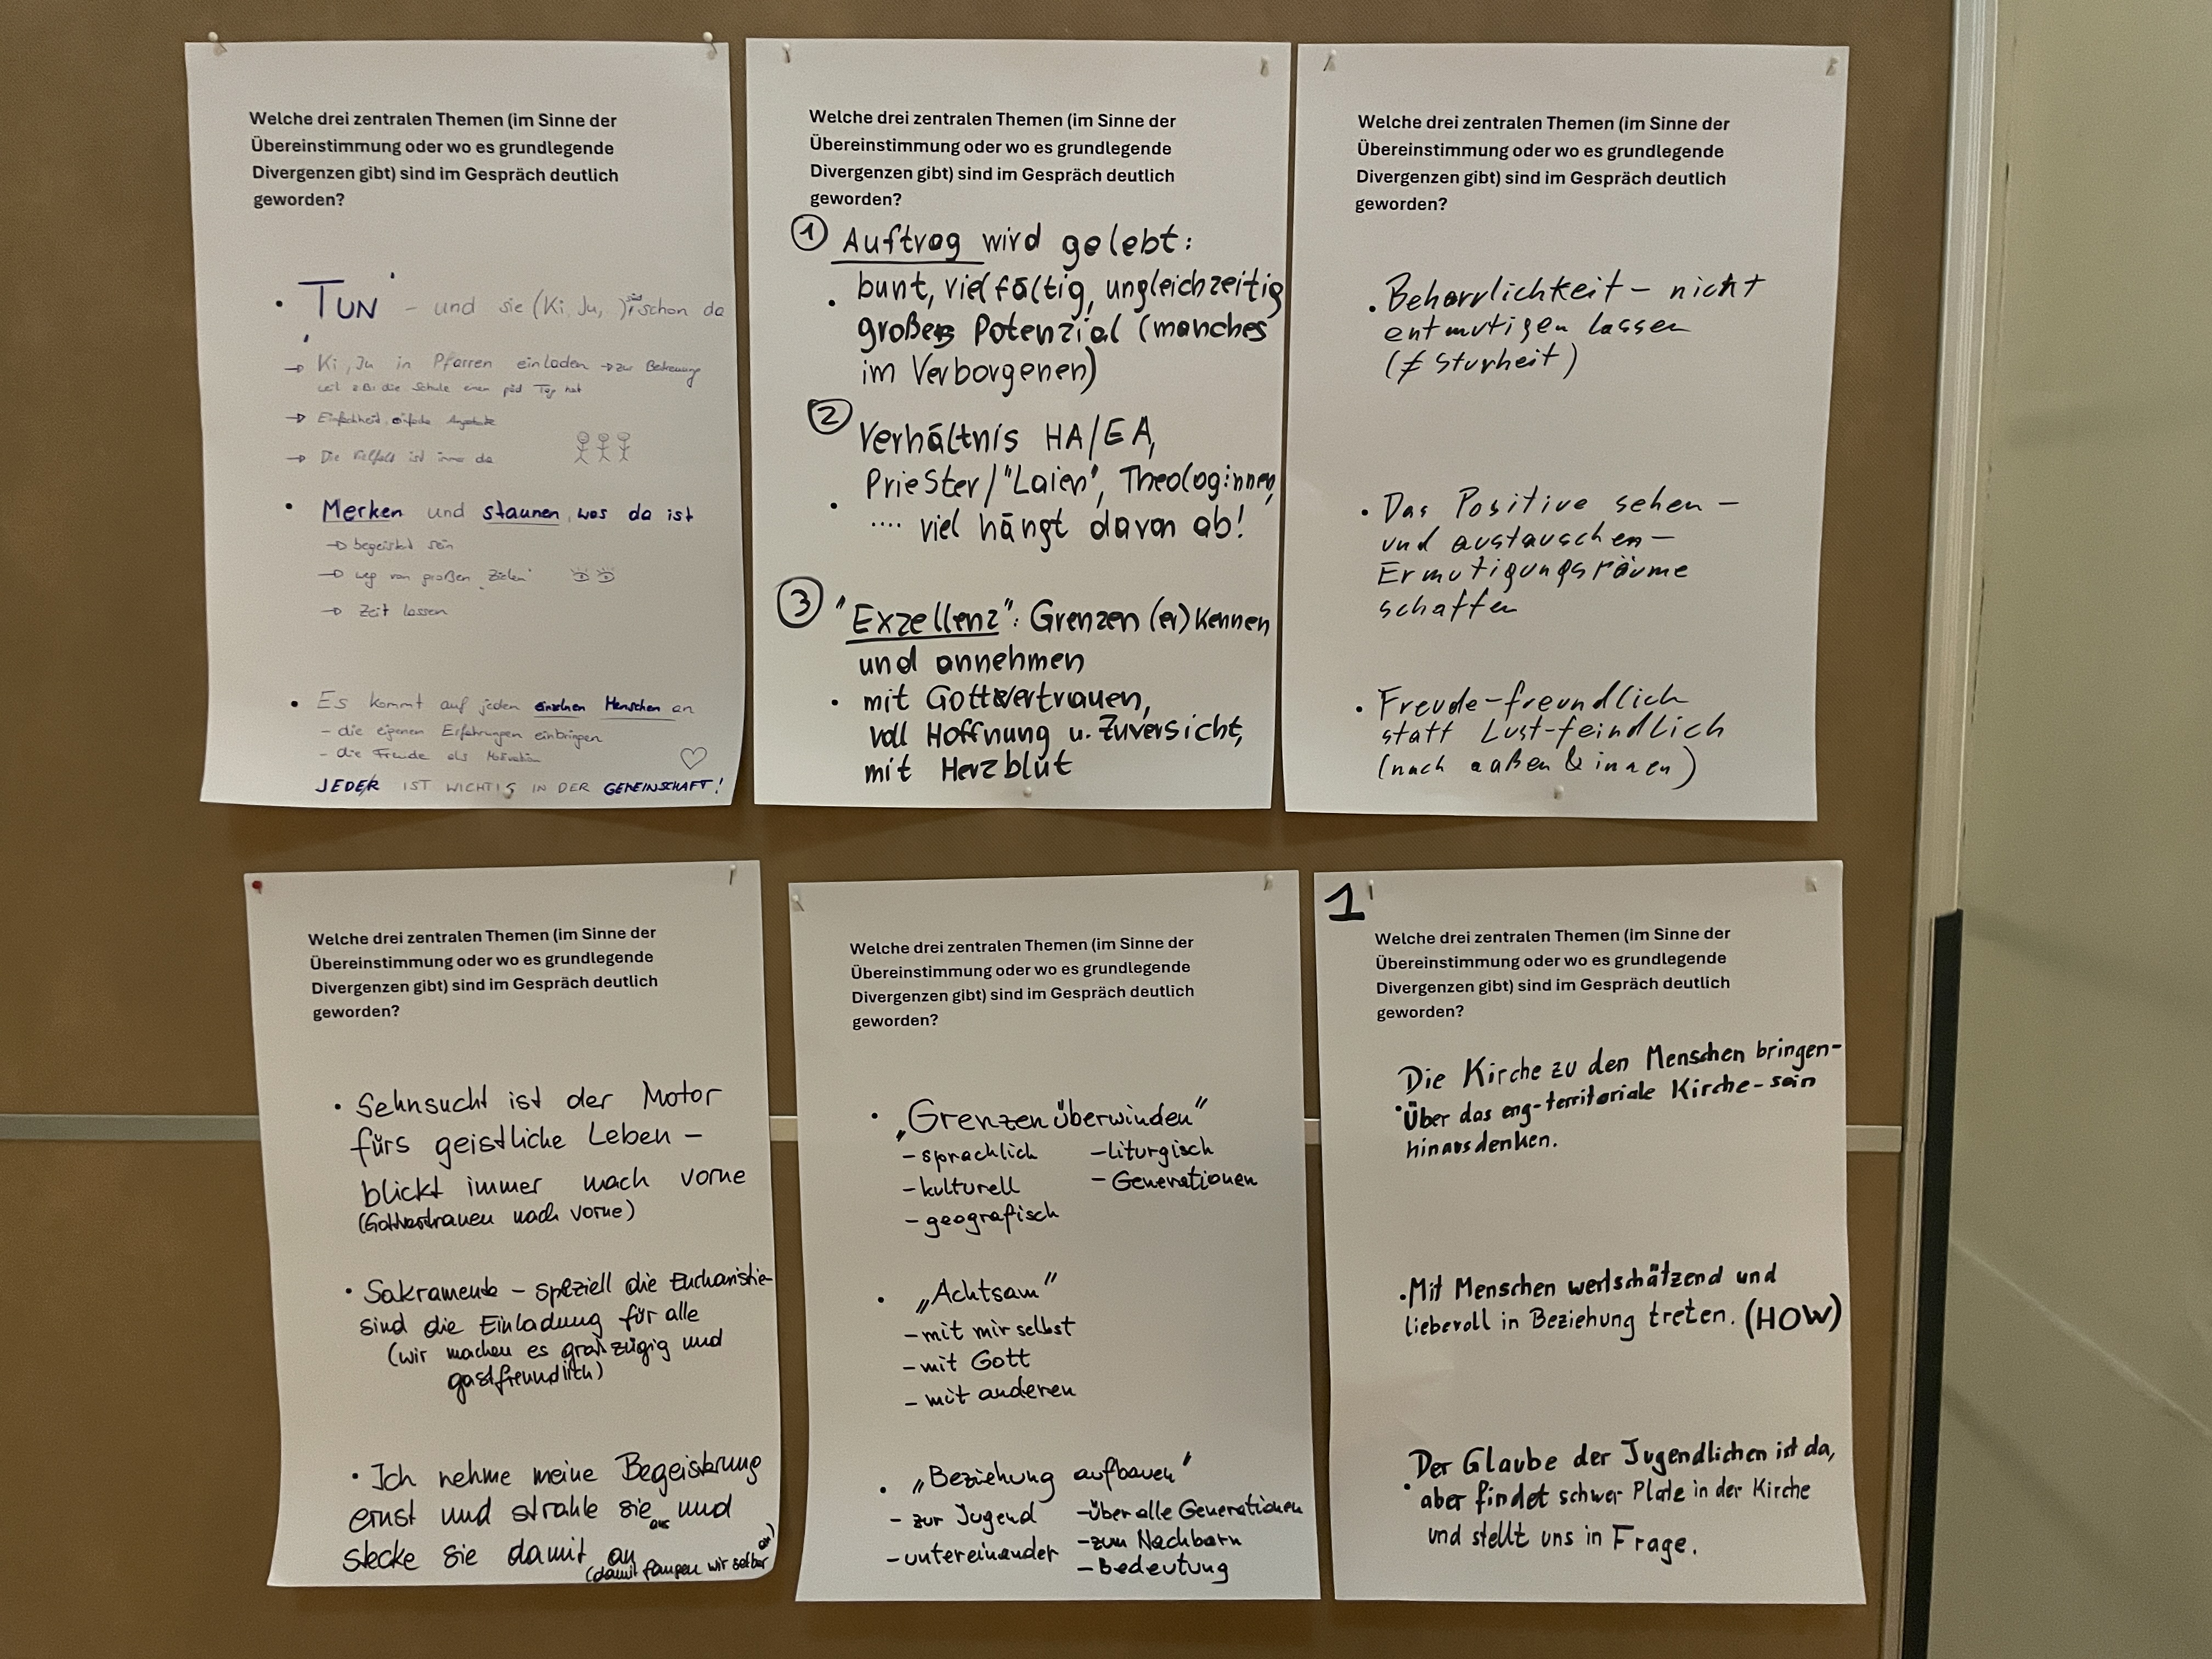 Welche drei zentralen Themen (im Sinne der
Übereinstimmung oder wo es grundlegende
Divergenzen gibt) sind im Gespräch deutlich
geworden?
• TUN - und sie (Ki, Ju, ) sind schon da
→ Ki, Ju in Pfarren einladen → zur Betreuung
weil z.B. die Schule einen päd Tag hat
→ Einfachheit, einfache Angebote
→ Die Vielfalt ist immer da
• Merken und staunen, was da ist
→ begeistert sein
→ weg von großen "Zielen"
→ Zeit lassen
• Es kommt auf jeden einzelnen Menschen an
- die eigenen Erfahrungen einbringen
- die Freude als Motivation
JEDE/R IST WICHTIG IN DER GEMEINSCHAFT!
Welche drei zentralen Themen (im Sinne der
Übereinstimmung oder wo es grundlegende
Divergenzen gibt) sind im Gespräch deutlich
geworden?
① Auftrag wird gelebt:
• bunt, vielfältig, ungleichzeitig
großes Potenzial (manches
im Verborgenen)
② Verhältnis HA/EA,
• Priester/"Laien", Theolog:innen,
.... viel hängt davon ab!
③ "Exzellenz": Grenzen (er)kennen
und annehmen
• mit Gottvertrauen,
voll Hoffnung u. Zuversicht,
mit Herzblut
Welche drei zentralen Themen (im Sinne der
Übereinstimmung oder wo es grundlegende
Divergenzen gibt) sind im Gespräch deutlich
geworden?
• Beharrlichkeit - nicht
entmutigen lassen
(≠ Sturheit)
• Das Positive sehen -
und austauschen -
Ermutigungsräume
schaffen
• Freude-freundlich
statt Lust-feindlich
(nach außen & innen)
Welche drei zentralen Themen (im Sinne der
Übereinstimmung oder wo es grundlegende
Divergenzen gibt) sind im Gespräch deutlich
geworden?
• Sehnsucht ist der Motor
fürs geistliche Leben -
blickt immer nach vorne
(Gottvertrauen nach vorne)
• Sakramente - speziell die Eucharistie -
sind die Einladung für alle
(wir machen es großzügig und
gastfreundlich)
• Ich nehme meine Begeisterung
ernst und strahle sie aus und
stecke sie damit an
(damit fangen wir selber an)
Welche drei zentralen Themen (im Sinne der
Übereinstimmung oder wo es grundlegende
Divergenzen gibt) sind im Gespräch deutlich
geworden?
• „Grenzen überwinden"
- sprachlich - liturgisch
- kulturell - Generationen
- geografisch
• „Achtsam"
- mit mir selbst
- mit Gott
- mit anderen
• „Beziehung aufbauen"
- zur Jugend - über alle Generationen
- untereinander - zum Nachbarn
- bedeutung
1
Welche drei zentralen Themen (im Sinne der
Übereinstimmung oder wo es grundlegende
Divergenzen gibt) sind im Gespräch deutlich
geworden?
Die Kirche zu den Menschen bringen -
• Über das eng-territoriale Kirche-sein
hinausdenken.
• Mit Menschen wertschätzend und
liebevoll in Beziehung treten. (HOW)
Der Glaube der Jugendlichen ist da,
• aber findet schwer Platz in der Kirche
und stellt uns in Frage.